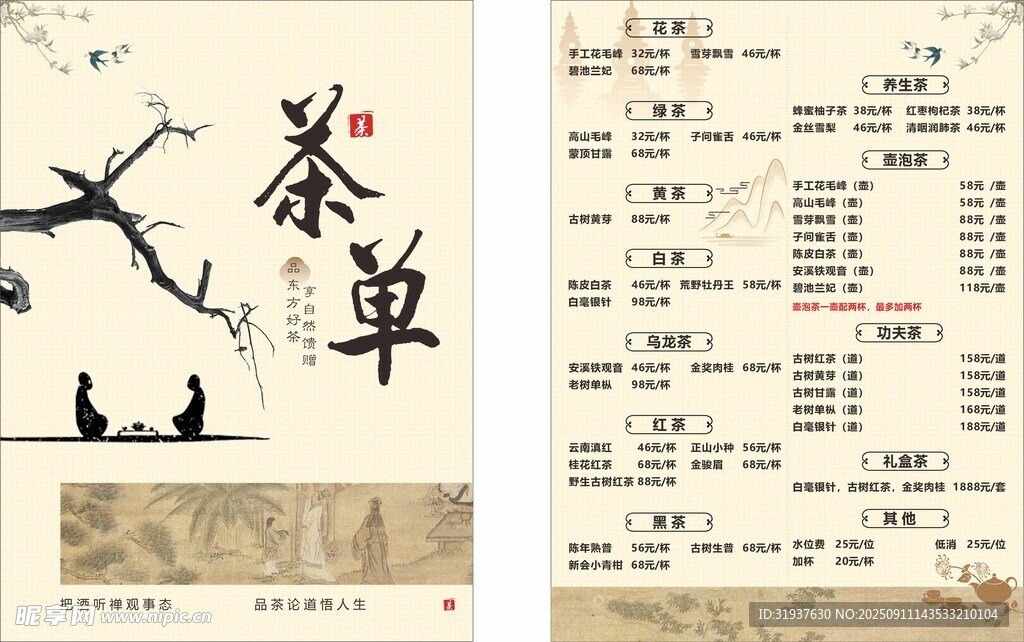 茶
单
茶
品
东方好茶
享自然馈赠
把酒听禅观事态
品茶论道悟人生
茶
昵享网 www.nipic.cn
花茶
手工花毛峰 32元/杯 雪芽飘雪 46元/杯
碧池兰妃 68元/杯
绿茶
高山毛峰 32元/杯 子问雀舌 46元/杯
蒙顶甘露 68元/杯
黄茶
古树黄芽 88元/杯
白茶
陈皮白茶 46元/杯 荒野牡丹王 58元/杯
白毫银针 98元/杯
乌龙茶
安溪铁观音 46元/杯 金奖肉桂 68元/杯
老树单枞 98元/杯
红茶
云南滇红 46元/杯 正山小种 56元/杯
桂花红茶 68元/杯 金骏眉 68元/杯
野生古树红茶 88元/杯
黑茶
陈年熟普 56元/杯 古树生普 68元/杯
新会小青柑 68元/杯
养生茶
蜂蜜柚子茶 38元/杯 红枣枸杞茶 38元/杯
金丝雪梨 46元/杯 清咽润肺茶 46元/杯
壶泡茶
手工花毛峰（壶） 58元 /壶
高山毛峰（壶） 58元 /壶
雪芽飘雪（壶） 88元 /壶
子问雀舌（壶） 88元 /壶
陈皮白茶（壶） 88元 /壶
安溪铁观音（壶） 88元 /壶
碧池兰妃（壶） 118元/壶
壶泡茶一壶配两杯，最多加两杯
功夫茶
古树红茶（道） 158元/道
古树黄芽（道） 158元/道
古树甘露（道） 158元/道
老树单枞（道） 168元/道
白毫银针（道） 188元/道
礼盒茶
白毫银针，古树红茶，金奖肉桂 1888元/套
其他
水位费 25元/位 低消 25元/位
加杯 20元/杯
ID:31937630 NO:20250911143533210104